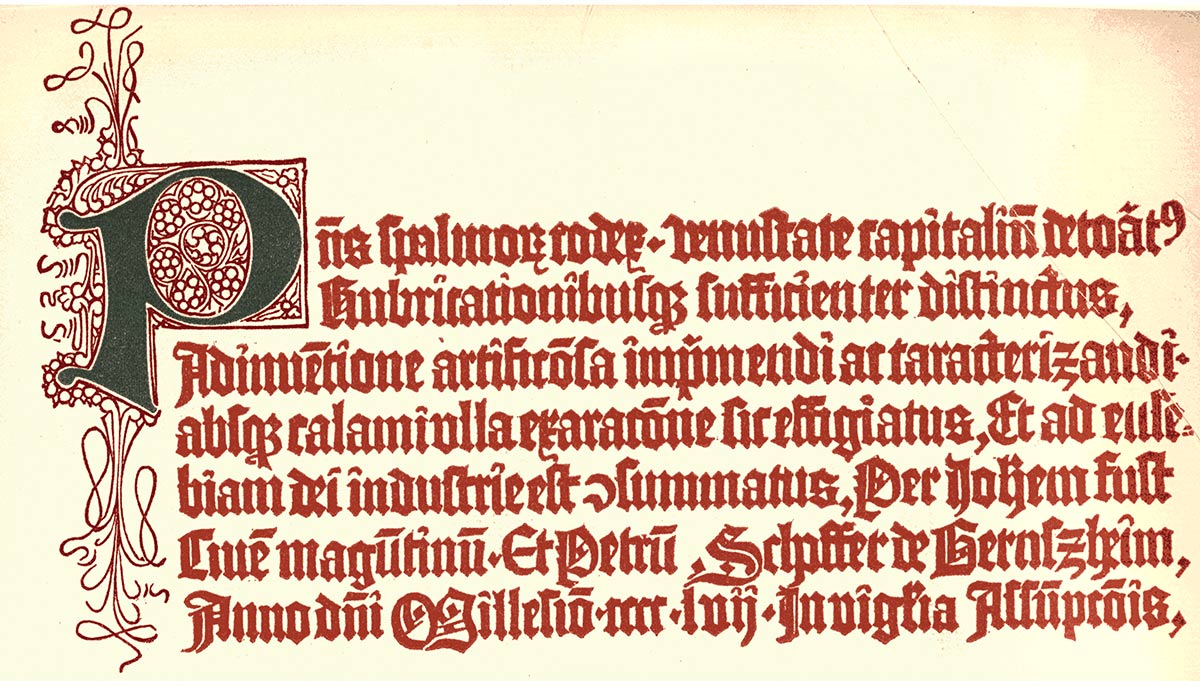 Pñs spalmoꝝ codex. venustate capitaliū decoātꝰ
Rubricationibusqꝫ sufficienter distinctus,
Adinuētione artificōsa imp̄mendi ac caracterizandi.
absqꝫ calami vlla exaracōne sic effigiatus, Et ad euse⸗
biam dei industrie est ↄsummatus, Per Johēm fust
Ciuē magūtinū. Et Petrū Schffer de Gernszheim,
Anno dñi Millesiō. cccc. lvij. In vigl̓ia Assūpcōis,